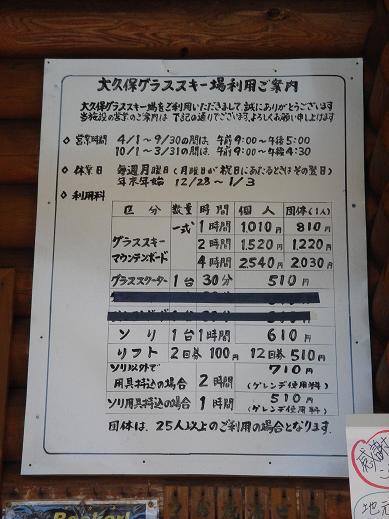 大久保グラススキー場利用ご案内
大久保グラススキー場をご利用いただきまして、誠にありがとうございます
当施設の営業のご案内は下記の通りでございます。よろしくお願い申し上げます
◇ 営業時間 4/1～9/30の間は 午前9:00～午後5:00
10/1～3/31の間は 午前9:00～午後4:30
◇ 休業日 毎週月曜日(月曜日が祝日にあたるときはその翌日)
年末年始 12/28～1/3
◇ 利用料
区分 数量 時間 個人 団体(1人)
グラススキー マウンテンボード 一式 1時間 1,010円 810円
2時間 1,520円 1,220円
4時間 2,540円 2,030円
グラススクーター 1台 30分 510円
ソリ 1台 1時間 610円
リフト 2回券 100円 12回券 510円
ソリ以外で 用具持込の場合 2時間 710円 (ゲレンデ使用料)
ソリ用具持込の場合 1時間 510円 (ゲレンデ使用料)
団体は、25人以上のご利用の場合となります。
感謝
地元